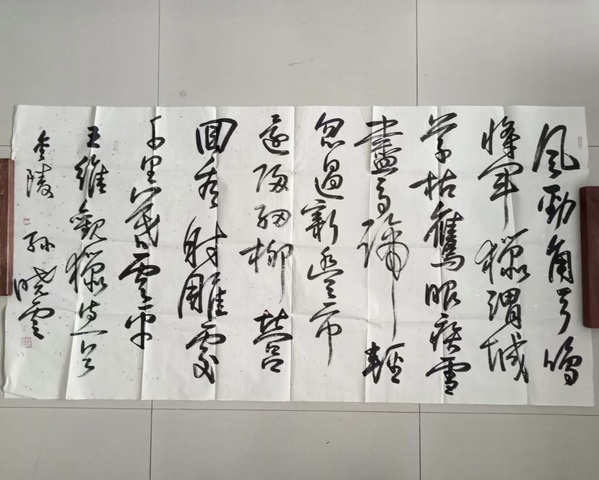 風勁角弓鳴
將軍獵渭城
草枯鷹眼疾雪
盡馬蹄輕
忽過新豐市
還歸細柳營
回看射雕處
千里暮雲平
王維觀獵詩
金陵 孙晓雲